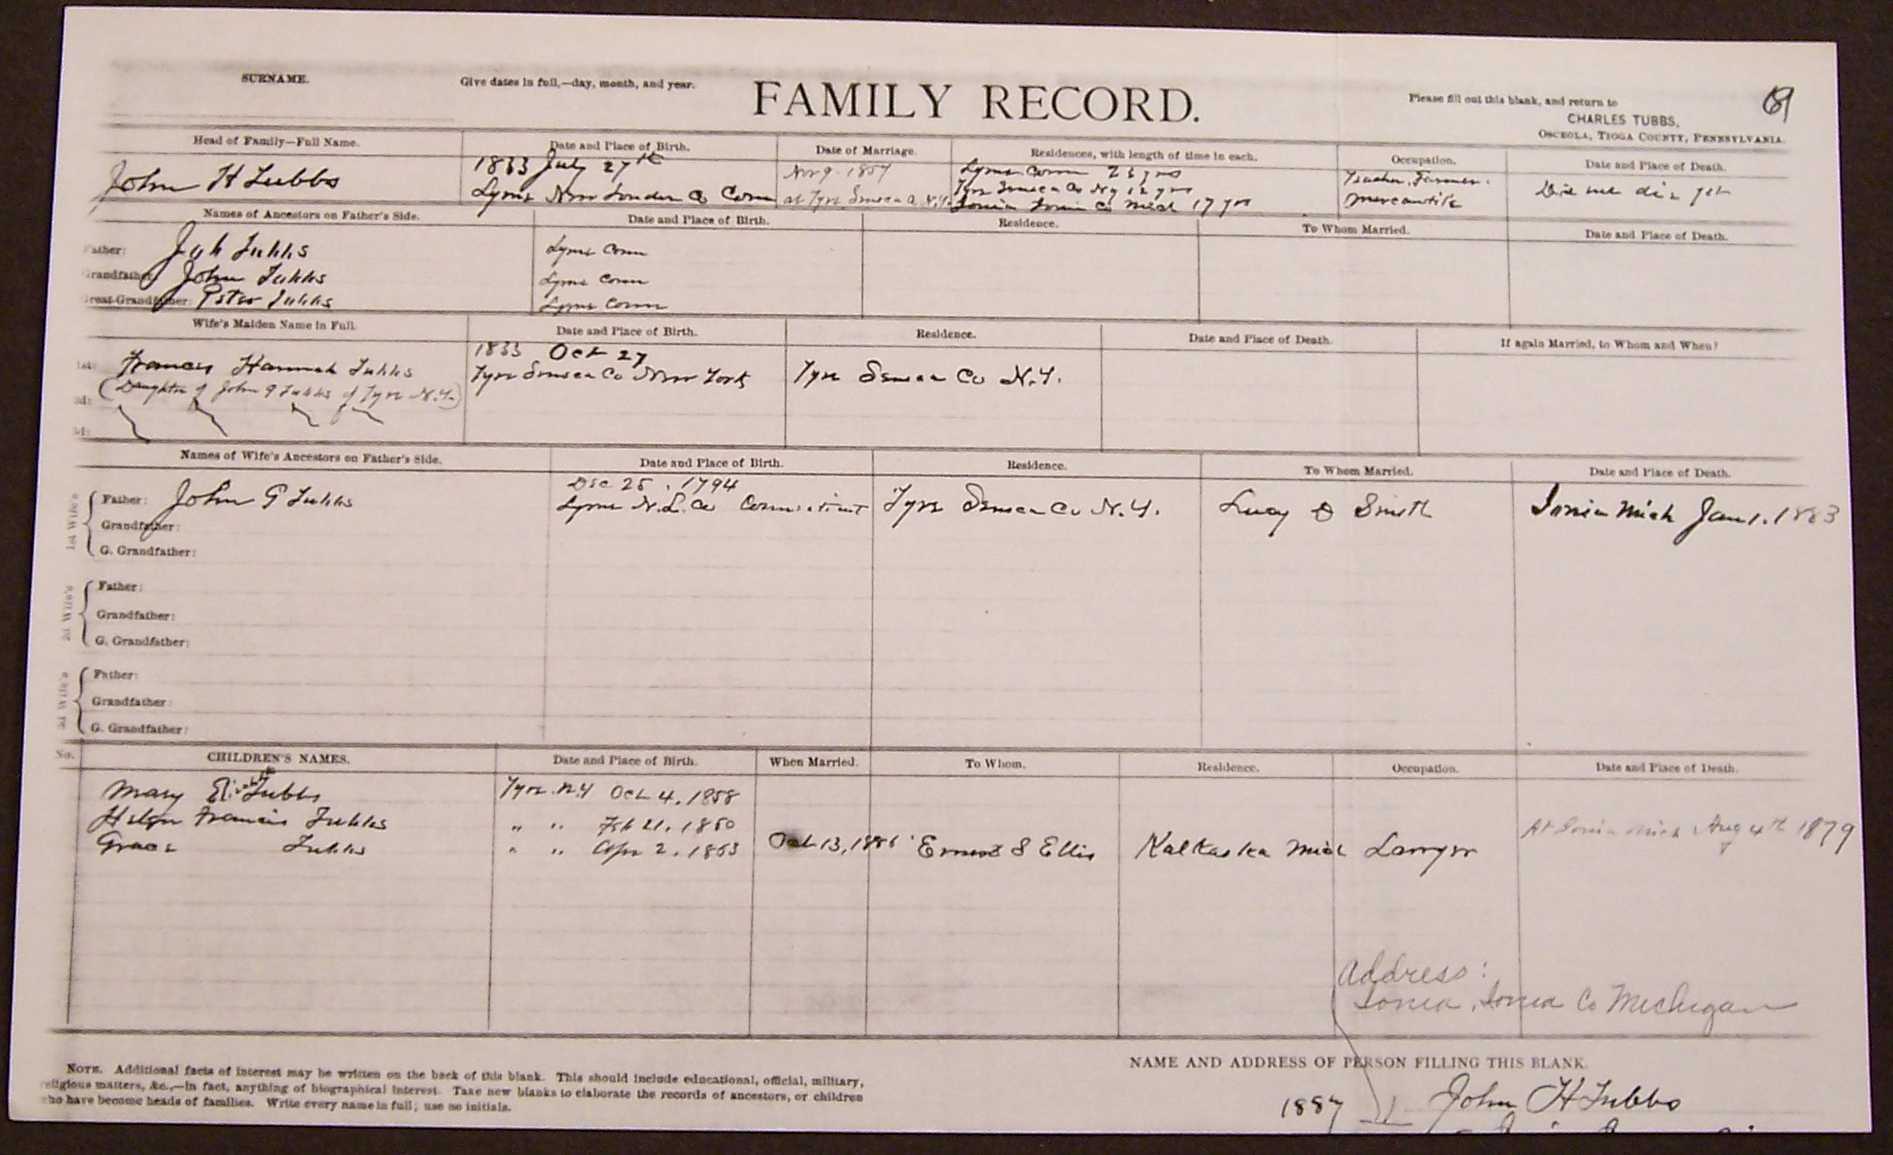 SURNAME.
Give dates in full,—day, month, and year.
FAMILY RECORD.
Please fill out this blank, and return to
CHARLES TUBBS,
OSCEOLA, TIOGA COUNTY, PENNSYLVANIA.
Head of Family—Full Name. Date and Place of Birth. Date of Marriage. Residences, with length of time in each. Occupation. Date and Place of Death.
1833 July 27th Nov 9 1857 Lyme Conn 23 yrs Teacher, Farmer.
John H Tubbs Tyre Seneca Co N.Y 12 yrs Did not die yet
Lyme New London Co Conn at Tyre Seneca Co N.Y. Ionia Ionia Co Mich 17 yrs Mercantile
Names of Ancestors on Father's Side. Date and Place of Birth. Residence. To Whom Married. Date and Place of Death.
Father: Tubbs Lyme Conn
Grandfather: John Tubbs Lyme Conn
Great-Grandfather: Peter Tubbs Lyme Conn
Wife's Maiden Name in Full. Date and Place of Birth. Residence. Date and Place of Death. If again Married, to Whom and When?
1833 Oct 27
1st: Francis Hannah Tubbs Tyre Seneca Co New York Tyre Seneca Co N.Y.
(Daughter of John G Tubbs of Tyre N.Y.)
2d:
3d:
Names of Wife's Ancestors on Father's Side. Date and Place of Birth. Residence. To Whom Married. Date and Place of Death.
Dec 25, 1794
1st Wife's Father: John G Tubbs Lyme N.L. Co Connecticut Tyre Seneca Co N.Y. Lucy D Smith Ionia Mich Jan 1. 1883
Grandfather:
G. Grandfather:
2d Wife's Father:
Grandfather:
G. Grandfather:
3d Wife's Father:
Grandfather:
G. Grandfather:
No. CHILDREN'S NAMES. Date and Place of Birth. When Married. To Whom. Residence. Occupation. Date and Place of Death.
Mary Tubbs Tyre N.Y Oct 4, 1858
Helen Francis Tubbs " " Feb 21, 1860 At Ionia Mich Aug 4th 1879
Grace Tubbs " " Apr 2, 1863 Oct 13, 1886 Ernest S Ellis Kalkaska Mich Lawyer
Address:
Ionia, Ionia Co Michigan
NOTE. Additional facts of interest may be written on the back of this blank. This should include educational, official, military,
religious matters, &c.,—in fact, anything of biographical interest. Take new blanks to elaborate the records of ancestors, or children
who have become heads of families. Write every name in full; use no initials.
NAME AND ADDRESS OF PERSON FILLING THIS BLANK.
1887 John H Tubbs